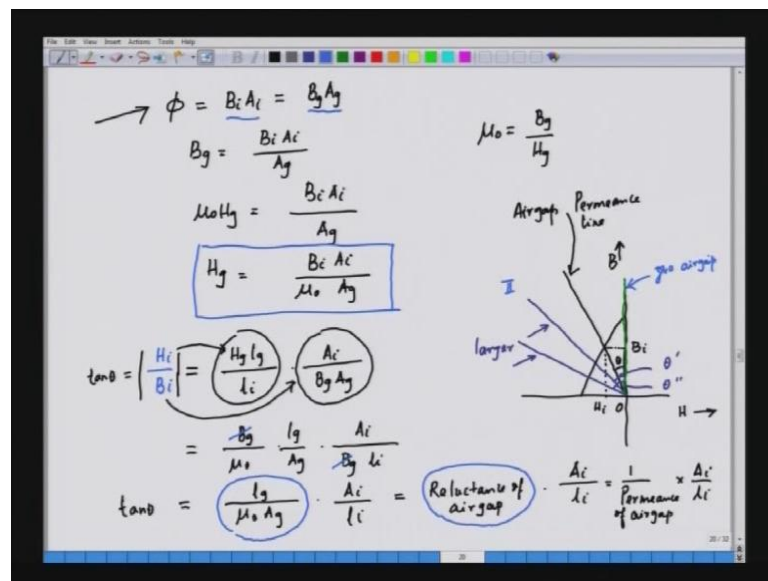 File Edit View Insert Actions Tools Help
ϕ = BiAi = BgAg
Bg = Bi Ai / Ag
μ₀Hg = Bi Ai / Ag
Hg = Bi Ai / μ₀ Ag
tanθ = |Hi / Bi| = Hg lg / li · Ai / Bg Ag
= Bg / μ₀ · lg / Ag · Ai / Bg li
tanθ = lg / μ₀ Ag · Ai / li = Reluctance of airgap · Ai / li = 1 / Permeance of airgap × Ai / li
μ₀ = Bg / Hg
Airgap Permeance line
B
zero airgap
II
larger
θ
Bi
θ'
θ''
Hi
O
H →
20 / 32
20